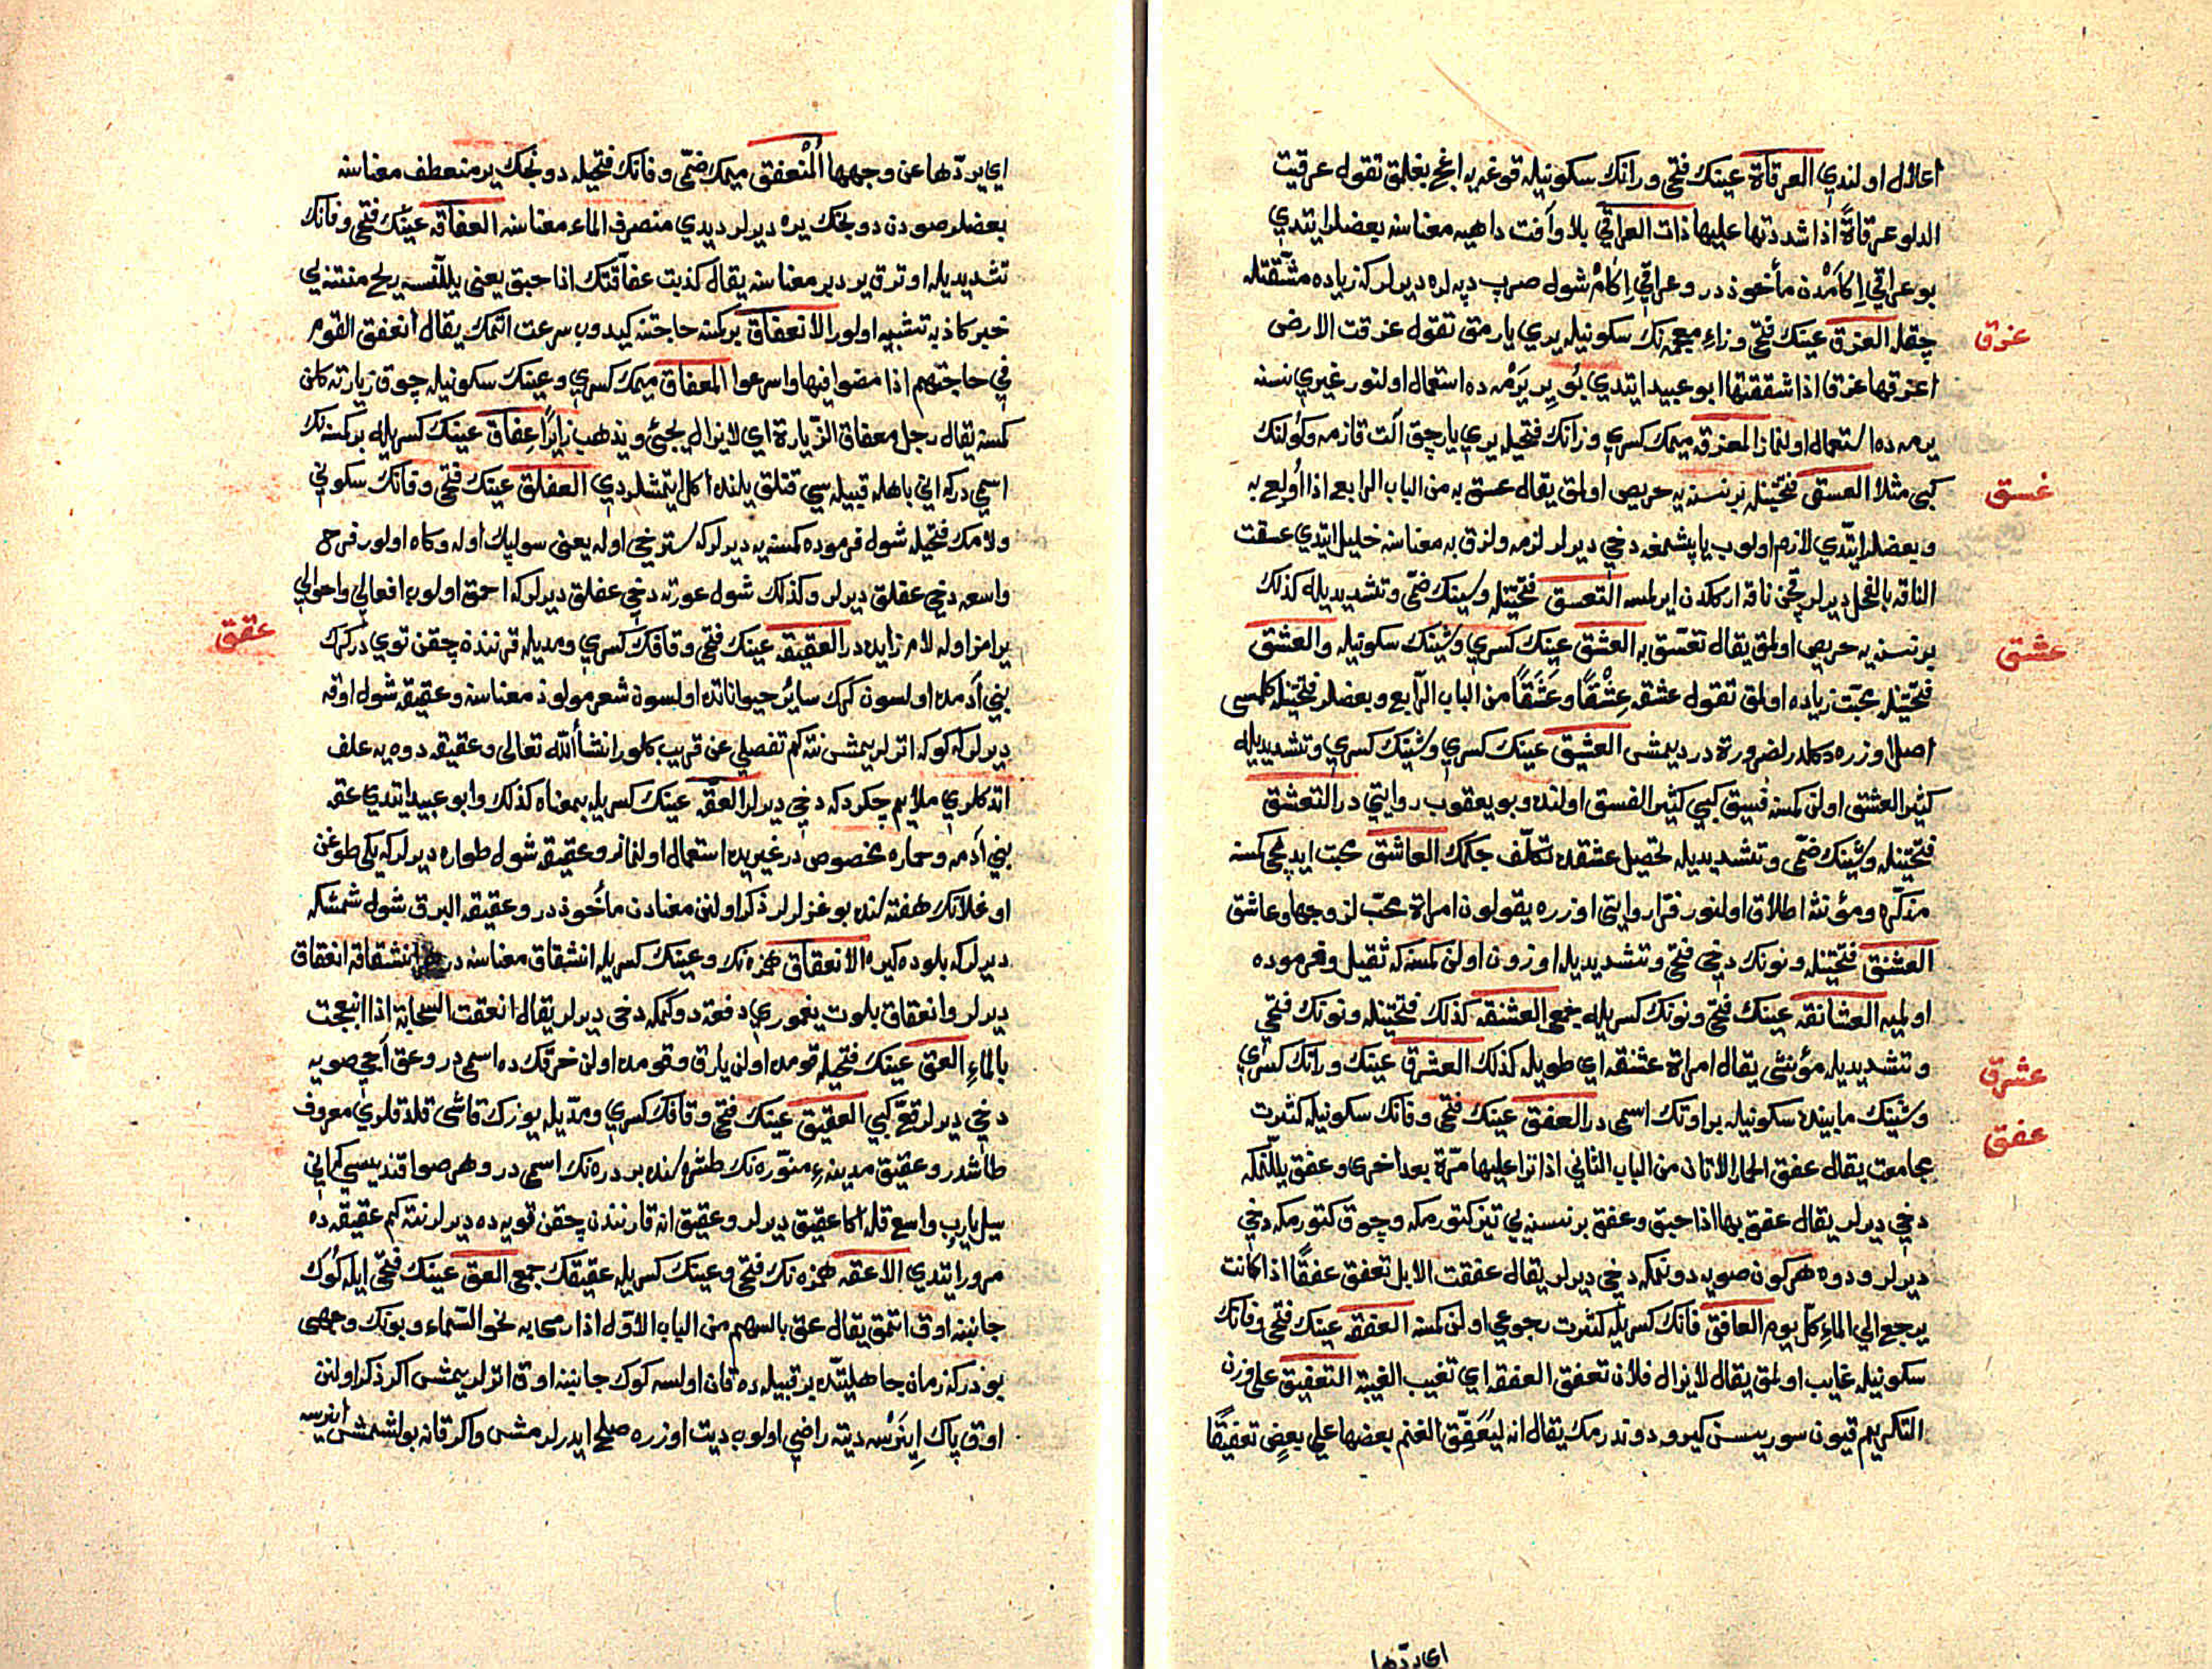 اعلال اولندي العرقاة عينك فتحى ورانك سكونيله قوغه يه اغج بغلمق تقول عرقيت
الدلو عرقاة اذا شددتها عليها ذات العراقي بلا وآفت داهيه معناسنه بعضلر ايتدي
بو عراقي اِكامْدن مأخوذدر وعراقي اِكام شول صرب دپه لره ديرلر كه زياده مشقتله
چقلر العزق عينك فتحى وزاء معجمه نك سكونيله يري يارمق تقول عزقت الارض
اعزقها عزقا اذا شققتها ابو عبيد ايتدي بُو يِر يَرْمه ده استعمال اولنور غيري نسنه
يرمه ده استعمال اولنماز المعزقه ميمك كسري وزانك فتحيله يري يارجق آلت قازمه وكُولنك
عزق
كبى مثلا العسق فتحتينله برنسنه يه حريص اولمق يقال عسق به من الباب الرابع اذا اُولع به
عسق
وبعضلر ايتدي لازم اولوب ياپشمغه دخي ديرلر لزمه ولزق به معناسنه خليل ايتدي عسقت
الناقه بالفحل ديرلر قچن ناقه اركلدن ايرلمسه التعسق فتحتينله وسينك ضمّى وتشديديله كذلك
برنسنه يه حريص اولمق يقال تعسّق به العشق عينك كسري وشينك سكونيله والعشق
عشق
فتحتينله محبّت زياده اولمق تقول عشقه عِشْقًا وعَشَقًا من الباب الرّابع وبعضلر فتحتينله كلمسى
اصل اوزره دكلدر لضرورة در ديمشس العشيق عينك كسري وشينك كسري وتشديديله
كثير العشق اولن كمسنه فسيق كبي كثير الفسق اولنده وبو يعقوب روايتي در التعشق
فتحتينله وشينك ضمّى وتشديديله تحصيل عشقده تكلّف چكمك العاشق محبت ايديجى كمسنه
مذكّره ومؤنثه اطلاق اولنور فرّا روايتي اوزره يقولون امراة محبّ لزوجها وعاشق
العشنق فتحتينله ونونك دخي فتحى وتشديديله اوزون اولن كمسنه كه ثقيل وفرموده
اولميه العشانقه عينك فتحى ونونك كسريله جمعى العشنقه كذلك فتحتينله ونونك فتحى
وتشديديله مؤنثى يقال امراة عشنقه اي طويله كذلك العشرق عينك ورانك كسري
عشرق
وشينك مابينده سكونيله بر اوتك اسمى در العفق عينك فتحى وفانك سكونيله كثرت
عفق
مجامعت يقال عفق الحمار الاتان من الباب الثاني اذا نزا عليها مرّة بعد اخرى وعفق يللّنمكه
دخي ديرلر يقال عفق بها اذا حبق وعفق برنسنه يي تيز كتورمكه وچوق كتورمكه دخي
ديرلر ودوه هر كون صويه دونمكه دخي ديرلر يقال عفقت الابل تعفق عفقًا اذا كانت
يرجع الي الماء كل يوم العافق فانك كسريله كثرت رجوعي اولن كمسنه العفقه عينك فتحى وفانك
سكونيله غايب اولمق يقال لايزال فلان تعفق العفقه اي تغيب الغيبة التعفيق علي وزن
التكريم قيون سوريسن كيرو دوندرمك يقال انه ليُعَفِّق الغنم بعضها علي بعضٍ تعفيقًا
اي يردّها
اي يردّها عن وجهها المُنْعفق ميمك ضمّى وفانك فتحيله دونجك ير منعطف معناسنه
بعضلر صودن دونجك يره ديرلر ديدي منصرف الماء معناسنه العفاقه عينك فتحى وفانك
تشديديله اوترق ير دبر معناسنه يقال كذبت عفاقتك اذا حبق يعني يللّنسه ريح منتنه يي
خبر كاذبه تشبيه اولور الانعفاق بر كمسنه حاجتنه كيدوب سرعت اتمك يقال انعفق القوم
في حاجتهم اذا مضوا فيها واسرعوا المعفاق ميمك كسري وعينك سكونيله چوق زيارته كلن
كمسنه يقال رجل معفاق الزّيارة اي لايزال يجئ ويذهب زايرًا عِفاق عينك كسريله بر كمسنه نك
اسمي در كه اني باهله قبيله سي قتلق يلنده اكل ايتمشلردي العفلق عينك فتحى وفانك سكوني
ولامك فتحيله شول فرموده كمسنه يه ديرلر كه سترخي اوله يعني سولپك اوله وكاه اولور فرج
واسعه دخي عفلق ديرلر وكذلك شول عورته دخي عفلق ديرلر كه احمق اولوب افعالي واحوالي
يرامز اوله لام زايده در العقيقه عينك فتحى وقافك كسري ومديله قرننده چقن توي در كرك
عقق
بني آدمده اولسون كرك سائر حيواناتده اولسون شعر مولود معناسنه وعقيقه شول اوقه
ديرلر كه كوكه اترلر يمش نته كم تفصيلي عن قريب كلور انشأالله تعالى وعقيقه دوه يه علف
اتدكلري ملايم چكردكه دخي ديرلر العقه عينك كسريله بمعناه كذلك وابو عبيد ايتدي عقه
بني آدمه وحماره مخصوص در غيريده استعمال اولنماز وعقيقه شول طواره ديرلر كه يكى طوغن
اوغلانك هفته سنده بوغزلرلر ذكر اولنن معنادن مأخوذدر وعقيقه البرق شول شمشكه
ديرلر كه بلوده كيره الانعقاق همزه نك وعينك كسريله انشقاق معناسنه در انشقاقه انعقاق
ديرلر وانعقاق بلوت يغموري دفعة دوكمكه دخي ديرلر يقال انعقت السحابة اذا انبعجت
بالماء العق عينك فتحيله قومده اولن يارق وقومده اولن خرقك ده اسمى در وعق آجي صويه
دخي ديرلر قعّ كبي العقيق عينك فتحى وقافك كسري ومدّيله يوزك قاشى قلدقلري معروف
طاشدر وعقيق مدينهء منوّره نك طشره سنده بر دره نك اسمى در وهر صو اقنديسي كه اني
سيل يارب واسع قله اكا عقيق ديرلر وعقيق انه قارنندن چقن قويه ده ديرلر نته كم عقيقه ده
مرور ايتدي الاعقه همزه نك فتحى وعينك كسريله عقيقك جمعى العق عينك فتحى ايله كُوك
جانبنه اوق اتمق يقال عق بالسهم من الباب الاوّل اذا رمى به نحو السّماء وبونك وجهى
بودر كه زمان جاهليتده بر قبيله ده قان اولسه كوك جانبنه اوق اترلر يمش اكر ذكر اولنن
اوق پاك اينَرْسه ديته راضي اولوب ديت اوزره صلح ايدرلر مش واكر قانه بولشمش اينرسه